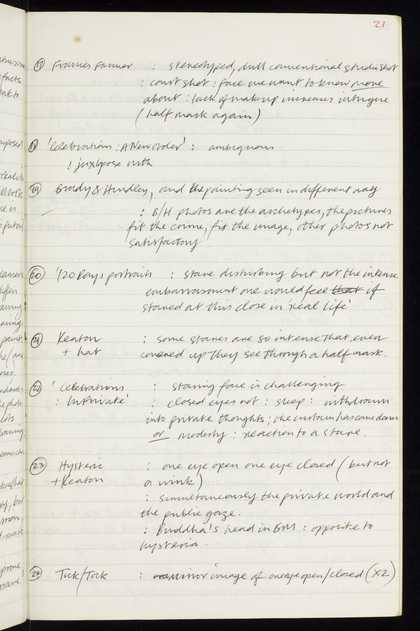 21
Frances Farmer : stereotyped, dull conventional studio shot
: court shot : face we want to know more
about : lack of makeup increases intrigue
(half mask again)
'Celebrations : A New Order' : ambiguous
! juxtapose with
Brady & Hindley, and the painting seen in different way
: B/H photos are the archetypes, the pictures
fit the crime, fit the image, other photos not
satisfactory
20 '120 Days' portraits : stare disturbing but not the intense
embarrassment one would feel that if
stared at this close in 'real life'
21 Keaton : some stares are so intense that, even
+ hat covered up they see through a half mask.
22 'Celebrations : staring face is challenging
: In Private' : closed eyes not : sleep : withdrawn
into private thoughts; the curtain has come down
or modesty : reaction to a stare.
23 Hysteric : one eye open one eye closed (but not
+ Keaton a wink)
: simultaneously the private world and
the public gaze.
: Buddha's head in BM : opposite to
hysteria.
24 Tick/Tock : mirror image of one eye open/closed (x2)